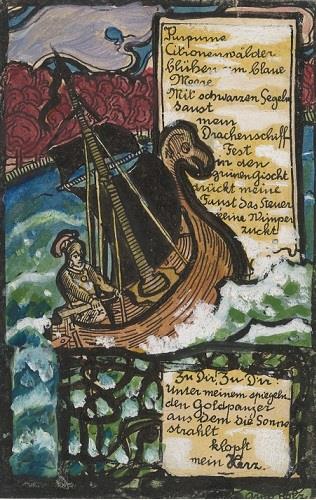 Purpurne
Citronenwälder
blühen um blaue
Moore
Mit schwarzen Segeln
saust
mein
Drachenschiff
Fest
in den
grünen Gischt
drückt meine
Faust das Steuer
keine Wimper
zuckt
Zu Dir! Zu Dir!
Unter meinem spiegeln
den Goldpanzer
aus Dem die Sonne
strahlt
klopft
mein Herz.